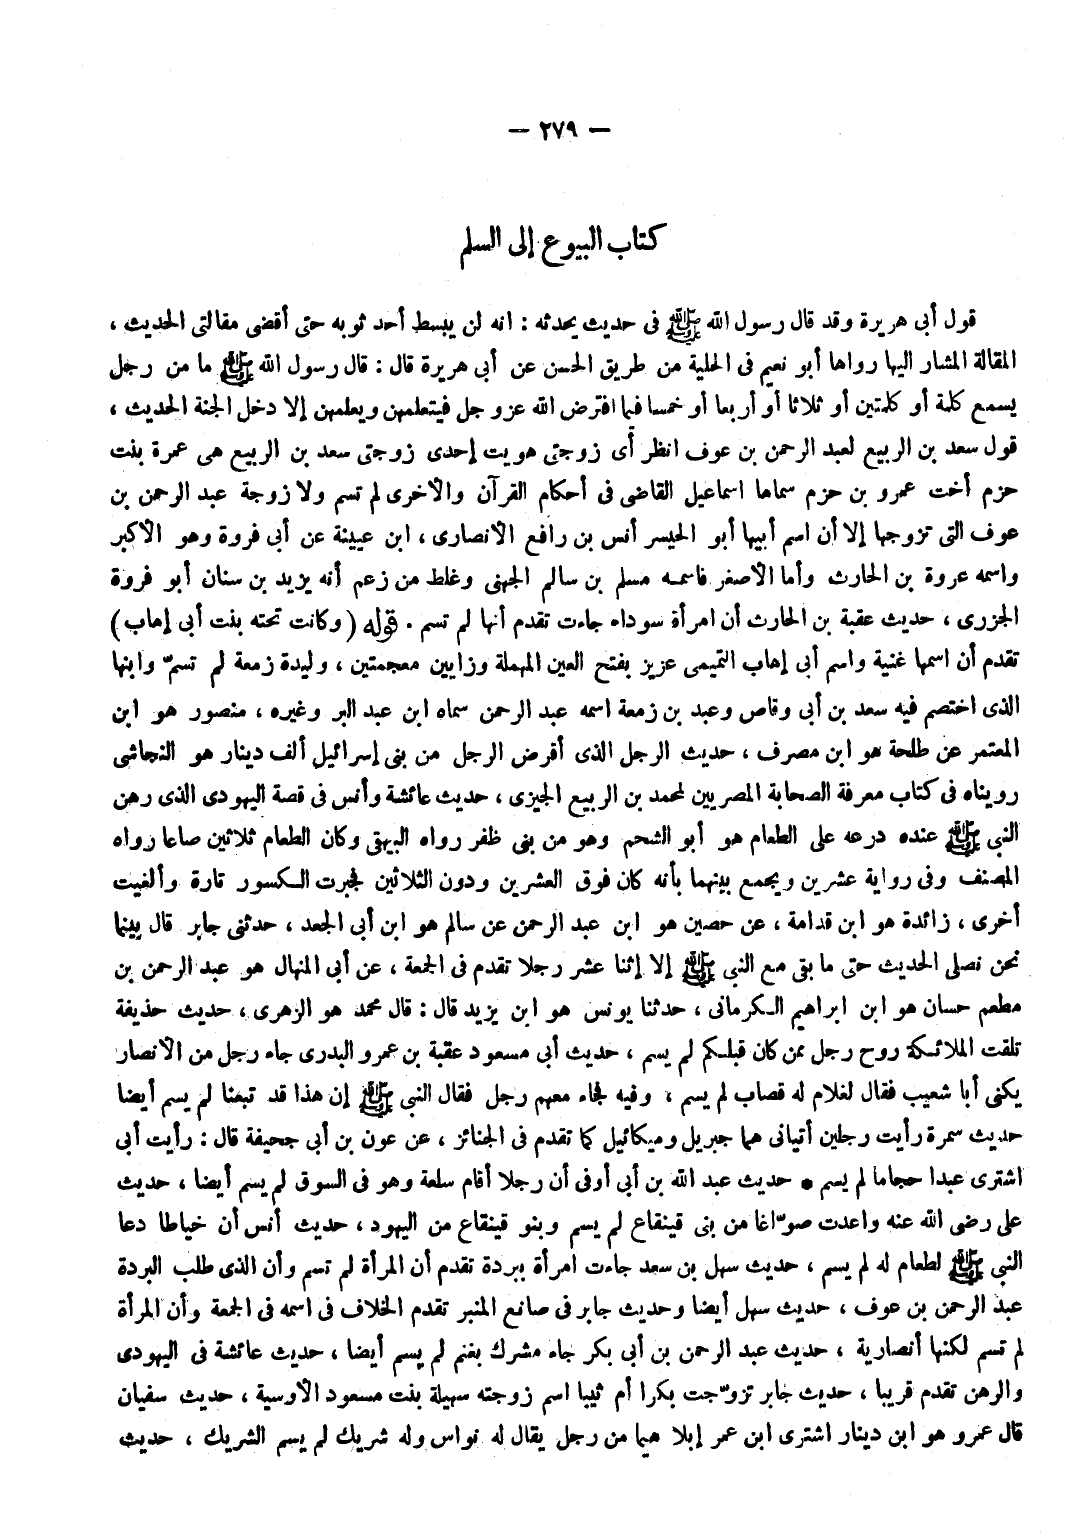 — ٢٧٩ —
كتاب البيوع إلى السلم
قول أبى هريرة وقد قال رسول الله ﷺ فى حديث يحدثه : انه لن يبسط أحد ثوبه حتى أقضى مقالتى الحديث ،
المقالة المشار اليها رواها أبو نعيم فى الحلية من طريق الحسن عن أبى هريرة قال : قال رسول الله ﷺ ما من رجل
يسمع كلمة أو كلمتين أو ثلاثا أو أربعا أو خمسا فيما افترض الله عزو جل فيتعلمهن ويعلمهن إلا دخل الجنة الحديث ،
قول سعد بن الربيع لعبد الرحمن بن عوف انظر أى زوجتى هويت إحدى زوجتى سعد بن الربيع هى عمرة بنت
حزم أخت عمرو بن حزم سماها اسماعيل القاضى فى أحكام القرآن والأخرى لم تسم ولا زوجة عبد الرحمن بن
عوف التى تزوجها إلا أن اسم أبيها أبو الحيسر أنس بن رافع الأنصارى ، ابن عيينة عن أبى فروة وهو الأكبر
واسمه عروة بن الحارث وأما الأصغر فاسمه مسلم بن سالم الجهنى وغلط من زعم أنه يزيد بن سنان أبو فروة
الجزرى ، حديث عقبة بن الحارث أن امرأة سوداء جاءت تقدم أنها لم تسم . قوله ( وكانت تحته بنت أبى إهاب )
تقدم أن اسمها غنية واسم أبى إهاب التميمى عزيز بفتح العين المهملة وزايين معجمتين ، وليدة زمعة لم تسمّ وابنها
الذى اختصم فيه سعد بن أبى وقاص وعبد بن زمعة اسمه عبد الرحمن سماه ابن عبد البر وغيره ، منصور هو ابن
المعتمر عن طلحة هو ابن مصرف ، حديث الرجل الذى أقرض الرجل من بنى إسرائيل ألف دينار هو النجاشى
رويناه فى كتاب معرفة الصحابة المصريين لمحمد بن الربيع الجيزى ، حديث عائشة وأنس فى قصة اليهودى الذى رهن
النبى ﷺ عنده درعه على الطعام هو أبو الشحم وهو من بنى ظفر رواه البيهقى وكان الطعام ثلاثين صاعا رواه
المصنف وفى رواية عشرين ويجمع بينهما بأنه كان فوق العشرين ودون الثلاثين فجبرت الكسور تارة وألغيت
أخرى ، زائدة هو ابن قدامة ، عن حصين هو ابن عبد الرحمن عن سالم هو ابن أبى الجعد ، حدثنى جابر قال بينما
نحن نصلى الحديث حتى ما بقى مع النبى ﷺ إلا إثنا عشر رجلا تقدم فى الجمعة ، عن أبى المنهال هو عبد الرحمن بن
مطعم حسان هو ابن ابراهيم الكرمانى ، حدثنا يونس هو ابن يزيد قال : قال محمد هو الزهرى ، حديث حذيفة
تلقت الملائكة روح رجل ممن كان قبلكم لم يسم ، حديث أبى مسعود عقبة بن عمرو البدرى جاء رجل من الأنصار
يكنى أبا شعيب فقال لغلام له قصاب لم يسم ، وفيه فجاء معهم رجل فقال النبى ﷺ إن هذا قد تبعنا لم يسم أيضا
حديث سمرة رأيت رجلين أتيانى هما جبريل وميكائيل كما تقدم فى الجنائز ، عن عون بن أبى جحيفة قال : رأيت أبى
اشترى عبدا حجاما لم يسم • حديث عبد الله بن أبى أوفى أن رجلا أقام سلعة وهو فى السوق لم يسم أيضا ، حديث
على رضى الله عنه واعدت صوّاغا من بنى قينقاع لم يسم وبنو قينقاع من اليهود ، حديث أنس أن خياطا دعا
النبى ﷺ لطعام له لم يسم ، حديث سهل بن سعد جاءت امرأة ببردة تقدم أن المرأة لم تسم وأن الذى طلب البردة
عبد الرحمن بن عوف ، حديث سهل أيضا وحديث جابر فى صانع المنبر تقدم الخلاف فى اسمه فى الجمعة وأن المرأة
لم تسم لكنها أنصارية ، حديث عبد الرحمن بن أبى بكر جاء مشرك بغنم لم يسم أيضا ، حديث عائشة فى اليهودى
والرهن تقدم قريبا ، حديث جابر تزوّجت بكرا أم ثيبا اسم زوجته سهيلة بنت مسعود الأوسية ، حديث سفيان
قال عمرو هو ابن دينار اشترى ابن عمر إبلا هيما من رجل يقال له نواس وله شريك لم يسم الشريك ، حديث